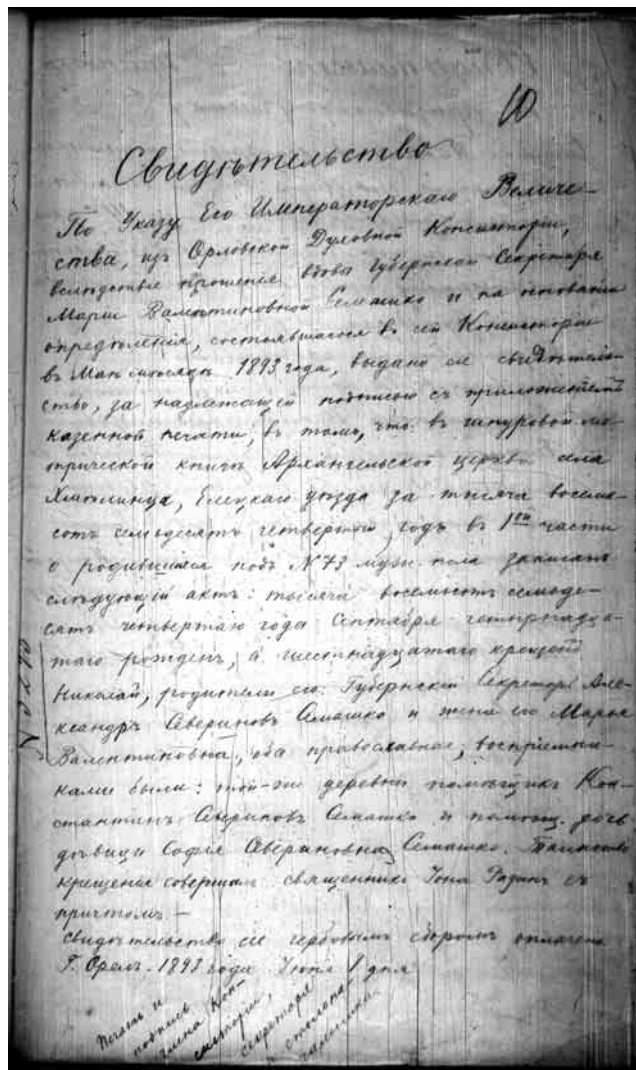 10
Свидѣтельство
По Указу Его Императорскаго Величе-
ства, изъ Орловской Духовной Консисторіи,
вслѣдствіе прошенія вдовы Губернскаго Секретаря
Маріи Валентиновной Семашко и на основаніи
опредѣленія, состоявшагося въ сей Консисторіи
въ Маѣ мѣсяцѣ 1893 года, выдано сіе свидѣтель-
ство, за надлежащей подписью съ приложеніемъ
казенной печати, въ томъ, что въ шнуровой ме-
трической книгѣ Архангельской церкви села
Хмѣлинца, Елецкаго уѣзда за тысяча восемь-
сотъ семьдесятъ четвертый годъ въ 1ой части
о родившихся подъ №73 муж. пола записанъ
слѣдующій актъ: тысяча восемьсотъ семьде-
сятъ четвертаго года Сентября четырнадца-
таго рожденъ, а шестнадцатаго крещенъ
Николай, родители его: Губернскій Секретарь Але-
ксандръ Севериновъ Семашко и жена его Марья
Валентиновна, оба православные; воспріемни-
ками были: той-же деревни помѣщикъ Кон-
стантинъ Севериновъ Семашко и помѣщ. дочь
дѣвица Софія Севериновна Семашко. Таинство
крещенія совершалъ священникъ Іона съ
причтомъ –
Свидѣтельство сіе гербовымъ сборомъ оплачено
Г. Орелъ. 1893 года Іюня 8 дня
Печать и
подпись
члена Кон-
систоріи,
секретаря
и столона-
чальника.